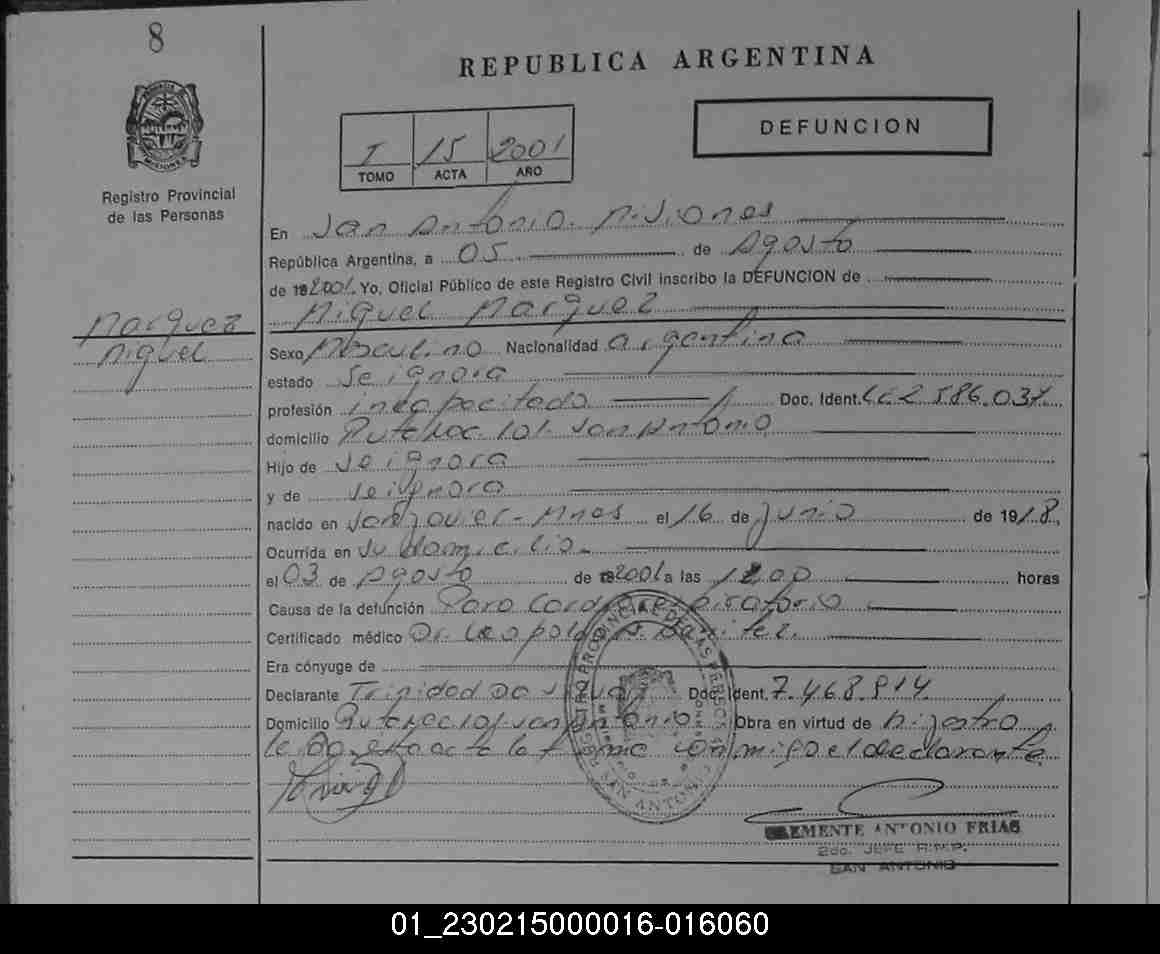 8
REPUBLICA ARGENTINA
PROVINCIA DE MISIONES
Registro Provincial
de las Personas
I 15 2001
TOMO ACTA AÑO
DEFUNCION
En San Antonio. Misiones
República Argentina, a 05 de Agosto
de 192001. Yo, Oficial Público de este Registro Civil inscribo la DEFUNCION de
Miguel Marquez
Marquez
Miguel
Sexo Masculino Nacionalidad argentina
estado se ignora
profesión incapacitado Doc. Ident. LE 2.586.037.
domicilio Ruta Nac. 101. San Antonio
Hijo de se ignora
y de se ignora
nacido en San Javier - Mnes el 16 de junio de 1918,
Ocurrida en su domicilio.
el 03 de Agosto de 192001 a las 1200 horas
Causa de la defunción Paro Cardiorespiratorio
Certificado médico Dr. Leopoldo Benitez.
Era cónyuge de
Declarante Trinidad Da Doc. Ident. 7.468.914.
Domicilio Ruta Nac 101. San Antonio Obra en virtud de hijastro
leída esta acta la firma conmigo el declarante
REGISTRO PROVINCIAL DE LAS PERSONAS
SAN ANTONIO
CLEMENTE ANTONIO FRIAS
2do. JEFE R.M.P.
SAN ANTONIO
01_230215000016-016060